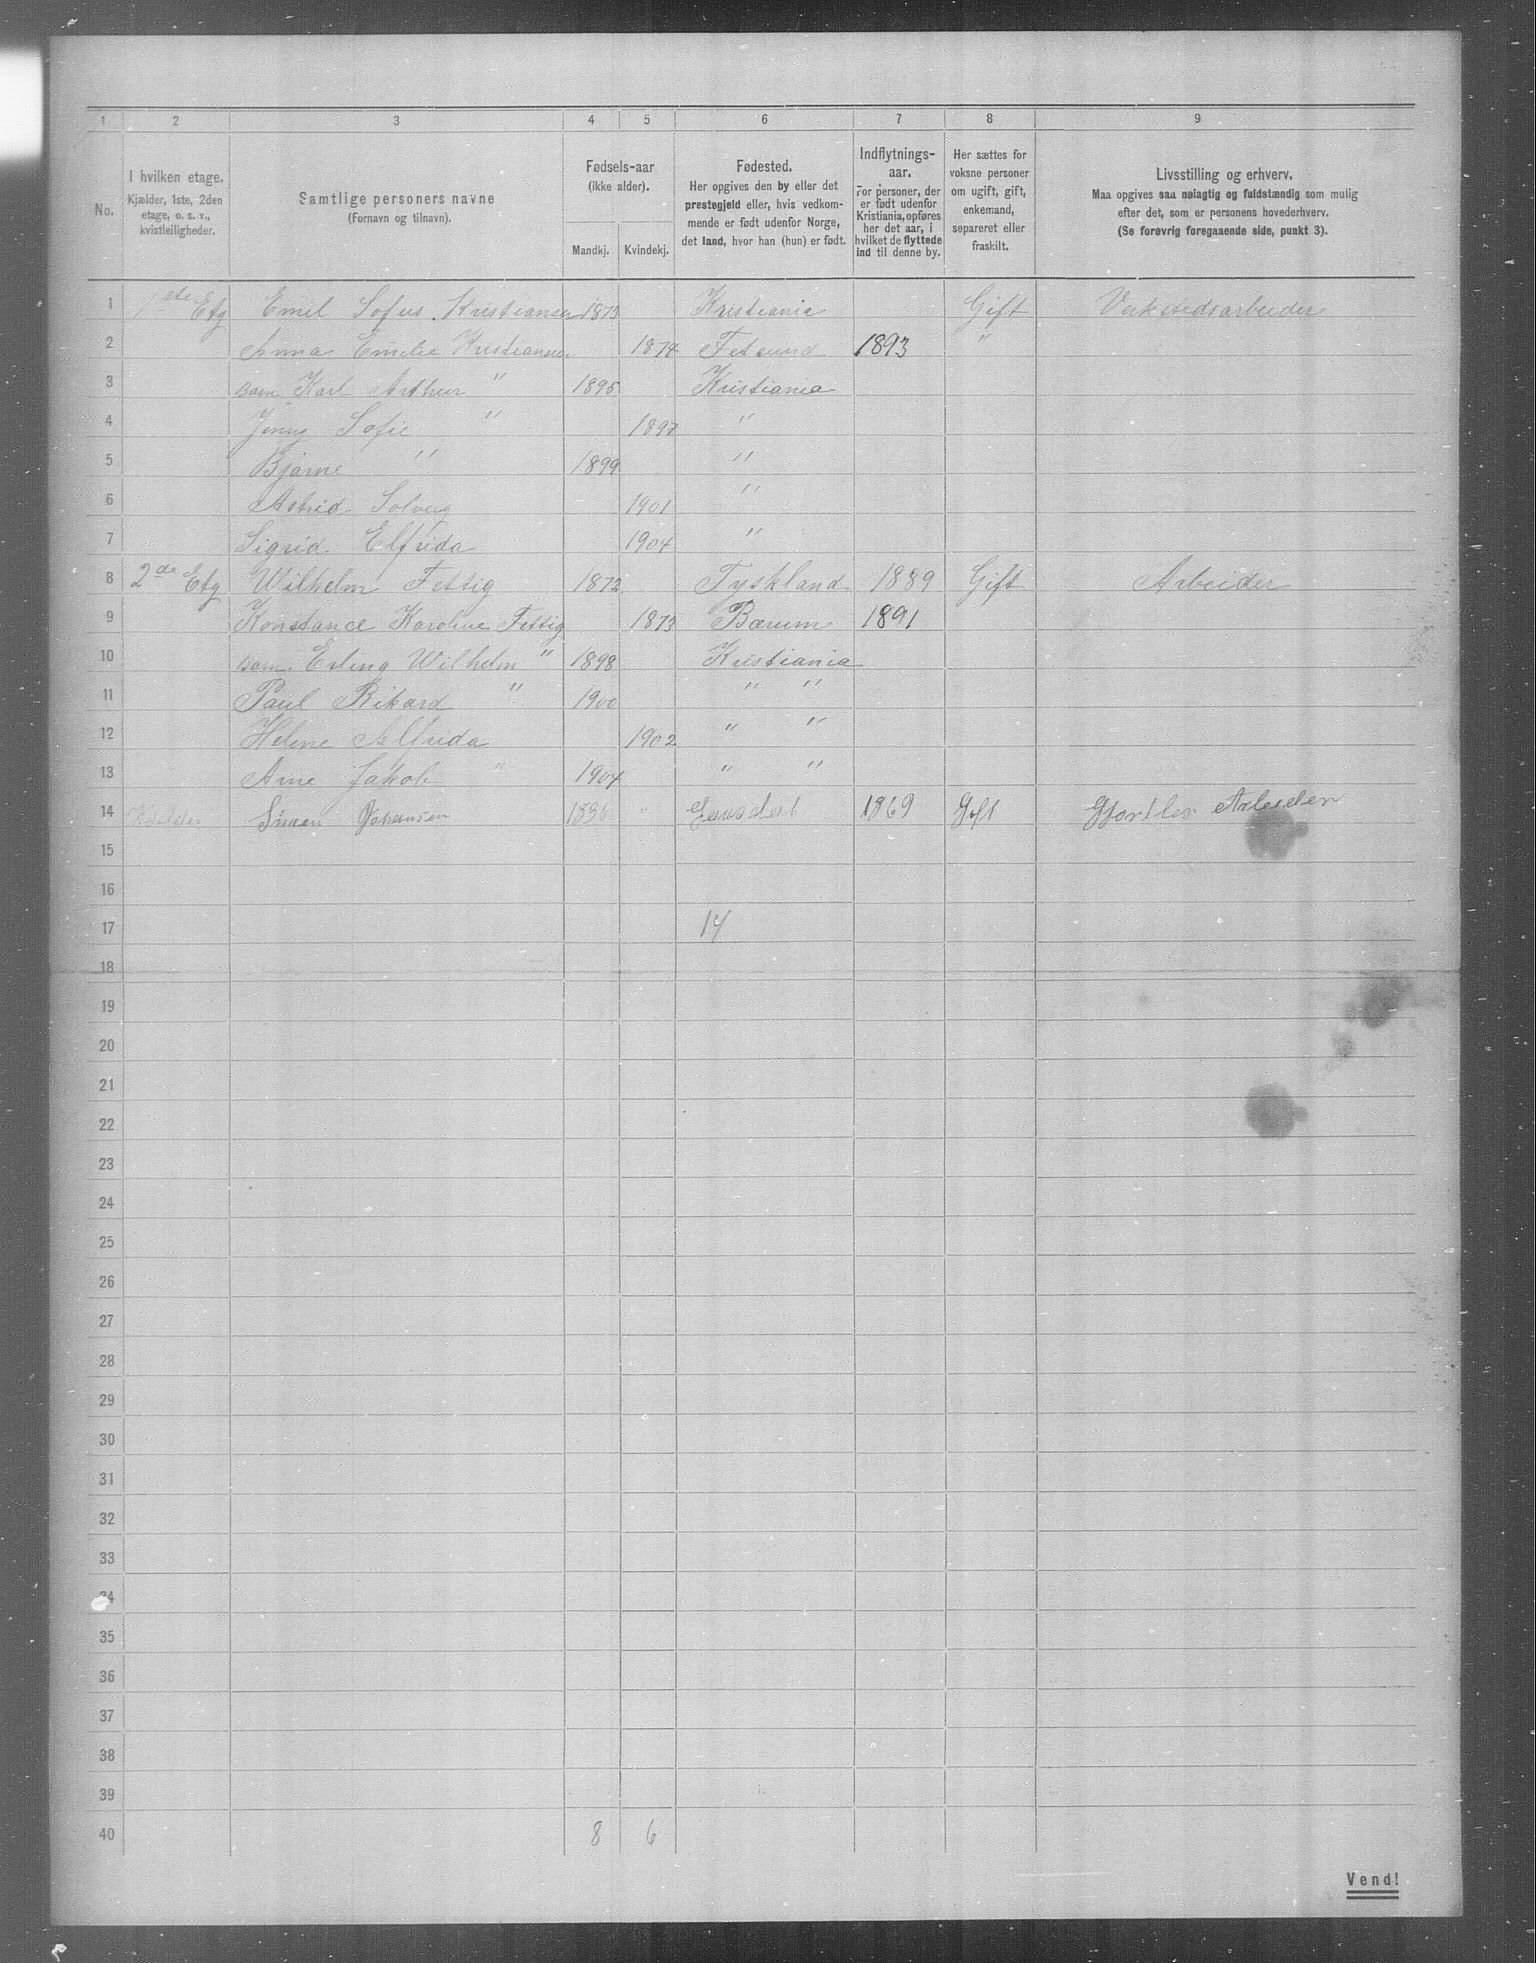 1 2 3 4 5 6 7 8 9
No.
I hvilken etage.
Kjælder, 1ste, 2den
etage, o. s. v.,
kvistleiligheder.
Samtlige personers navne
(Fornavn og tilnavn).
Fødsels-aar
(ikke alder).
Mandkj. Kvindekj.
Fødested.
Her opgives den by eller det
prestegjeld eller, hvis vedkom-
mende er født udenfor Norge,
det land, hvor han (hun) er født.
Indflytnings-
aar.
For personer, der
er født udenfor
Kristiania, opføres
her det aar, i
hvilket de flyttede
ind til denne by.
Her sættes for
voksne personer
om ugift, gift,
enkemand,
separeret eller
fraskilt.
Livsstilling og erhverv.
Maa opgives saa nøiagtig og fuldstændig som mulig
efter det, som er personens hovederhverv.
(Se forøvrig foregaaende side, punkt 3).
1 1ste Etg Emil Sofus Kristiansen 1873 Kristiania Gift Verkstedsarbeider
2 Anna Emelie Kristiansen 1874 Fetsund 1893 "
3 Barn Karl Arthur " 1895 Kristiania
4 Jenny Sofie " 1897 "
5 Bjarne " 1899 "
6 Astrid Solveig 1901 "
7 Sigrid Elfrida 1904 "
8 2de Etg Wilhelm Fettig 1872 Tyskland 1889 Gift Arbeider
9 Konstance Karoline Fettig 1873 Bærum 1891
10 Barn. Erling Wilhelm " 1898 Kristiania
11 Paul Rikard " 1900 " "
12 Helene Alfrida 1902 " "
13 Arne Jakob " 1904 " "
14 Kjelder Simen Johansen 1836 " 1869 Gift Arbeider
15
16
17 14
18
19
20
21
22
23
24
25
26
27
28
29
30
31
32
33
34
35
36
37
38
39
40 8 6
Vend!